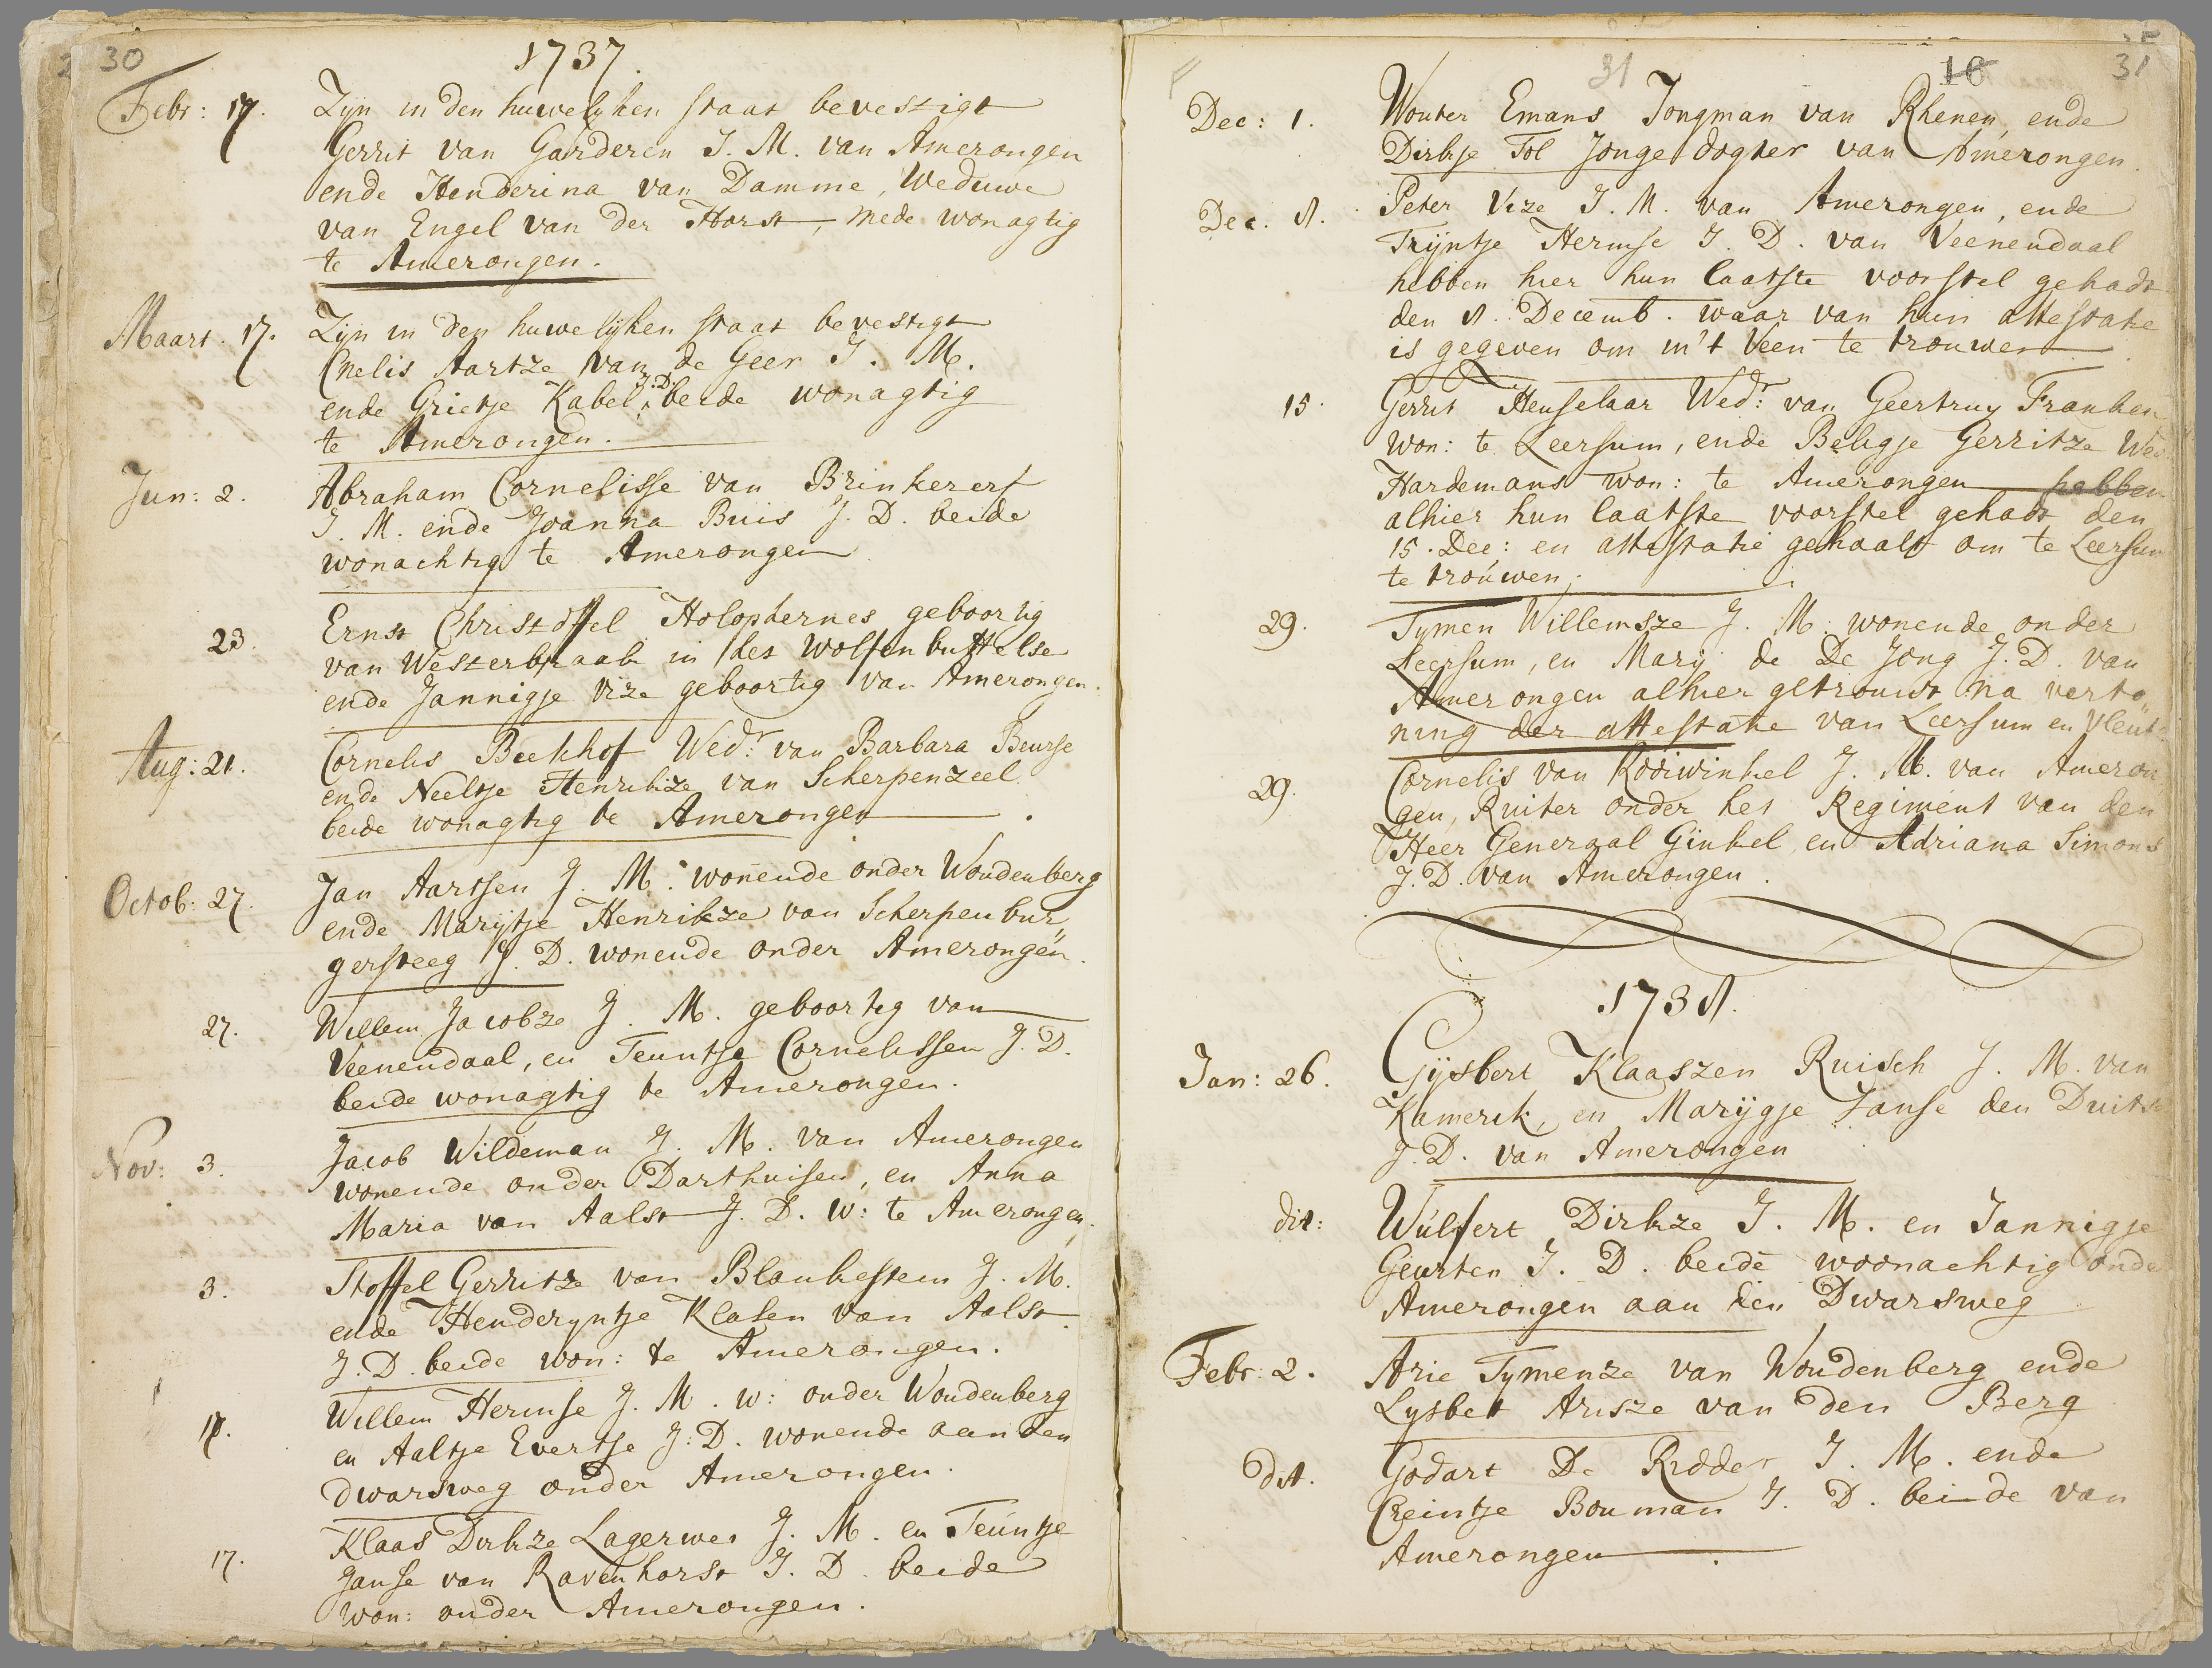 30
1737.
Febr: 17. Zyn in den huwelyken staat bevestigt
Gerrit van Garderen J. M. van Amerongen
ende Henderina van Damme, Weduwe
van Engel van der Horst, mede wonagtig
te Amerongen.
Maart. 17. Zijn in den huwelijken staat bevestigt
Cnelis Aartze van de Geer J. M.
ende Grietje Kabel, J. D. beide wonagtig
te Amerongen.
Jun: 2. Abraham Cornelisse van Brinkererf
J. M. ende Joanna Buis J. D. beide
wonachtig te Amerongen
23. Ernst Christoffel Holophernes geboortig
van Westerbraak in het Wolfenbuttelse
ende Jannigje Vize geboortig van Amerongen.
Aug: 21. Cornelis Beekhof Wedr: van Barbara Beurse
ende Neeltje Henrikze van Scherpenzeel
beide wonagtig te Amerongen.
Octob: 27. Jan Aartsen J. M. wonende onder Woudenberg
ende Marijtje Henrikze van Scherpenbur„
gersteeg J. D. wonende onder Amerongen.
27. Willem Jacobze J. M. geboortig van
Veenendaal, en Teuntje Cornelissen J. D.
beide wonagtig te Amerongen.
Nov: 3. Jacob Wildeman J. M. van Amerongen
wonende onder Darthuisen, en Anna
Maria van Aalst J. D. w: te Amerongen.
3. Stoffel Gerritze van Blankestein J. M.
ende Henderyntje Klasen van Aalst
J. D. beide won: te Amerongen.
Willem Hermse J. M. w: onder Woudenberg
en Aaltje Evertse J: D. wonende aan den
dwarsweg onder Amerongen.
17. Klaas Dirkze Lagerwei J. M. en Teúntje
Janse van Ravenhorst J. D. beide
won: onder Amerongen.
31 16 31
Dec: 1. Wouter Emans Jongman van Rhenen, ende
Dirkje Tol Jonge dogter van Amerongen
Dec. 8. Peter Vize J. M. van Amerongen, ende
Trijntje Hermse J. D. van Veenendaal
hebben hier hun laatste voorstel gehadt
den 8. Decemb. waar van hun attestatie
is gegeven om in't Veen te trouwen
15. Gerrit Heuselaar Wedr: van Geertruy Franken
won: te Leersum, ende Beligje Gerritze Wed
Hardemans won: te Amerongen hebben
alhier hun laatste voorstel gehadt den
15. Dec: en attestatie gehaalt om te Leersum
te troúwen.
29. Tymen Willemsze J. M. wonende onder
Leersum, en Marij de De Jong J. D. van
Amerongen alhier getrouwt na verto„
ning der attestatie van Leersum en Vleut
29. Cornelis van Kooiwinkel J. M. van Ameron
gen, Ruiter onder het Regiment van den
Heer Generaal Ginkel, en Adriana Simons
J. D. van Amerongen.
1738.
Jan: 26. Gijsbert Klaaszen Ruisch J. M. van
Kamerik, en Marijgje Janse den Duits
J. D. van Amerongen
dit: Wúlfert Dirkze J. M. en Jannigje
Geurten J. D. beide woonachtig onder
Amerongen aan den Dwarsweg
Febr: 2. Arie Tymenze van Woudenberg ende
Lysbet Arisze van den Berg
dit. Godart De Ridder J. M. ende
Creintje Bouman J. D. beide van
Amerongen.